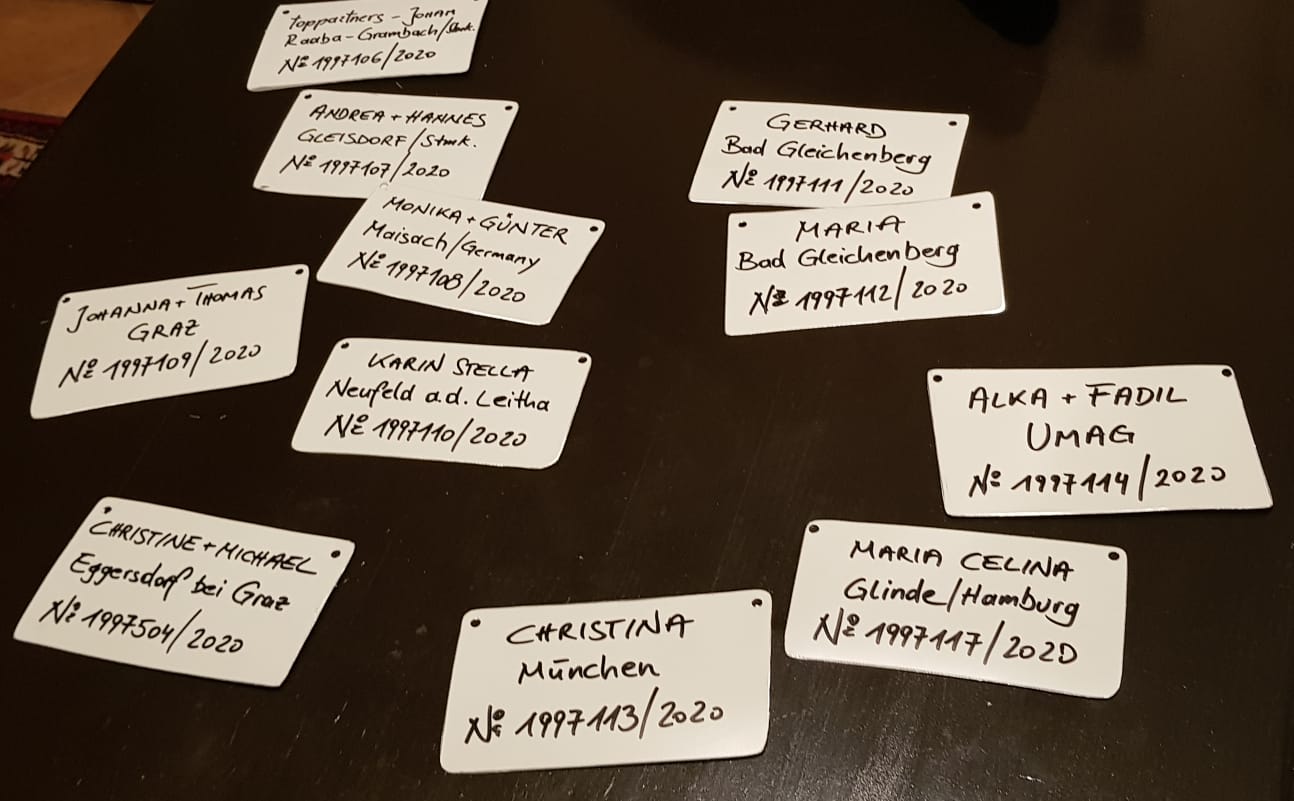 Toppartners - Johann
Raaba-Grambach/Stmk.
Nº 1997106/2020
ANDREA + HANNES
GLEISDORF/Stmk.
Nº 1997107/2020
MONIKA + GÜNTER
Maisach/Germany
Nº 1997108/2020
JOHANNA + THOMAS
GRAZ
Nº 1997109/2020
KARIN STELLA
Neufeld a.d. Leitha
Nº 1997110/2020
GERHARD
Bad Gleichenberg
Nº 1997111/2020
MARIA
Bad Gleichenberg
Nº 1997112/2020
ALKA + FADIL
UMAG
Nº 1997114/2020
CHRISTINE + MICHAEL
Eggersdorf bei Graz
Nº 1997504/2020
CHRISTINA
München
Nº 1997113/2020
MARIA CELINA
Glinde/Hamburg
Nº 1997117/2020